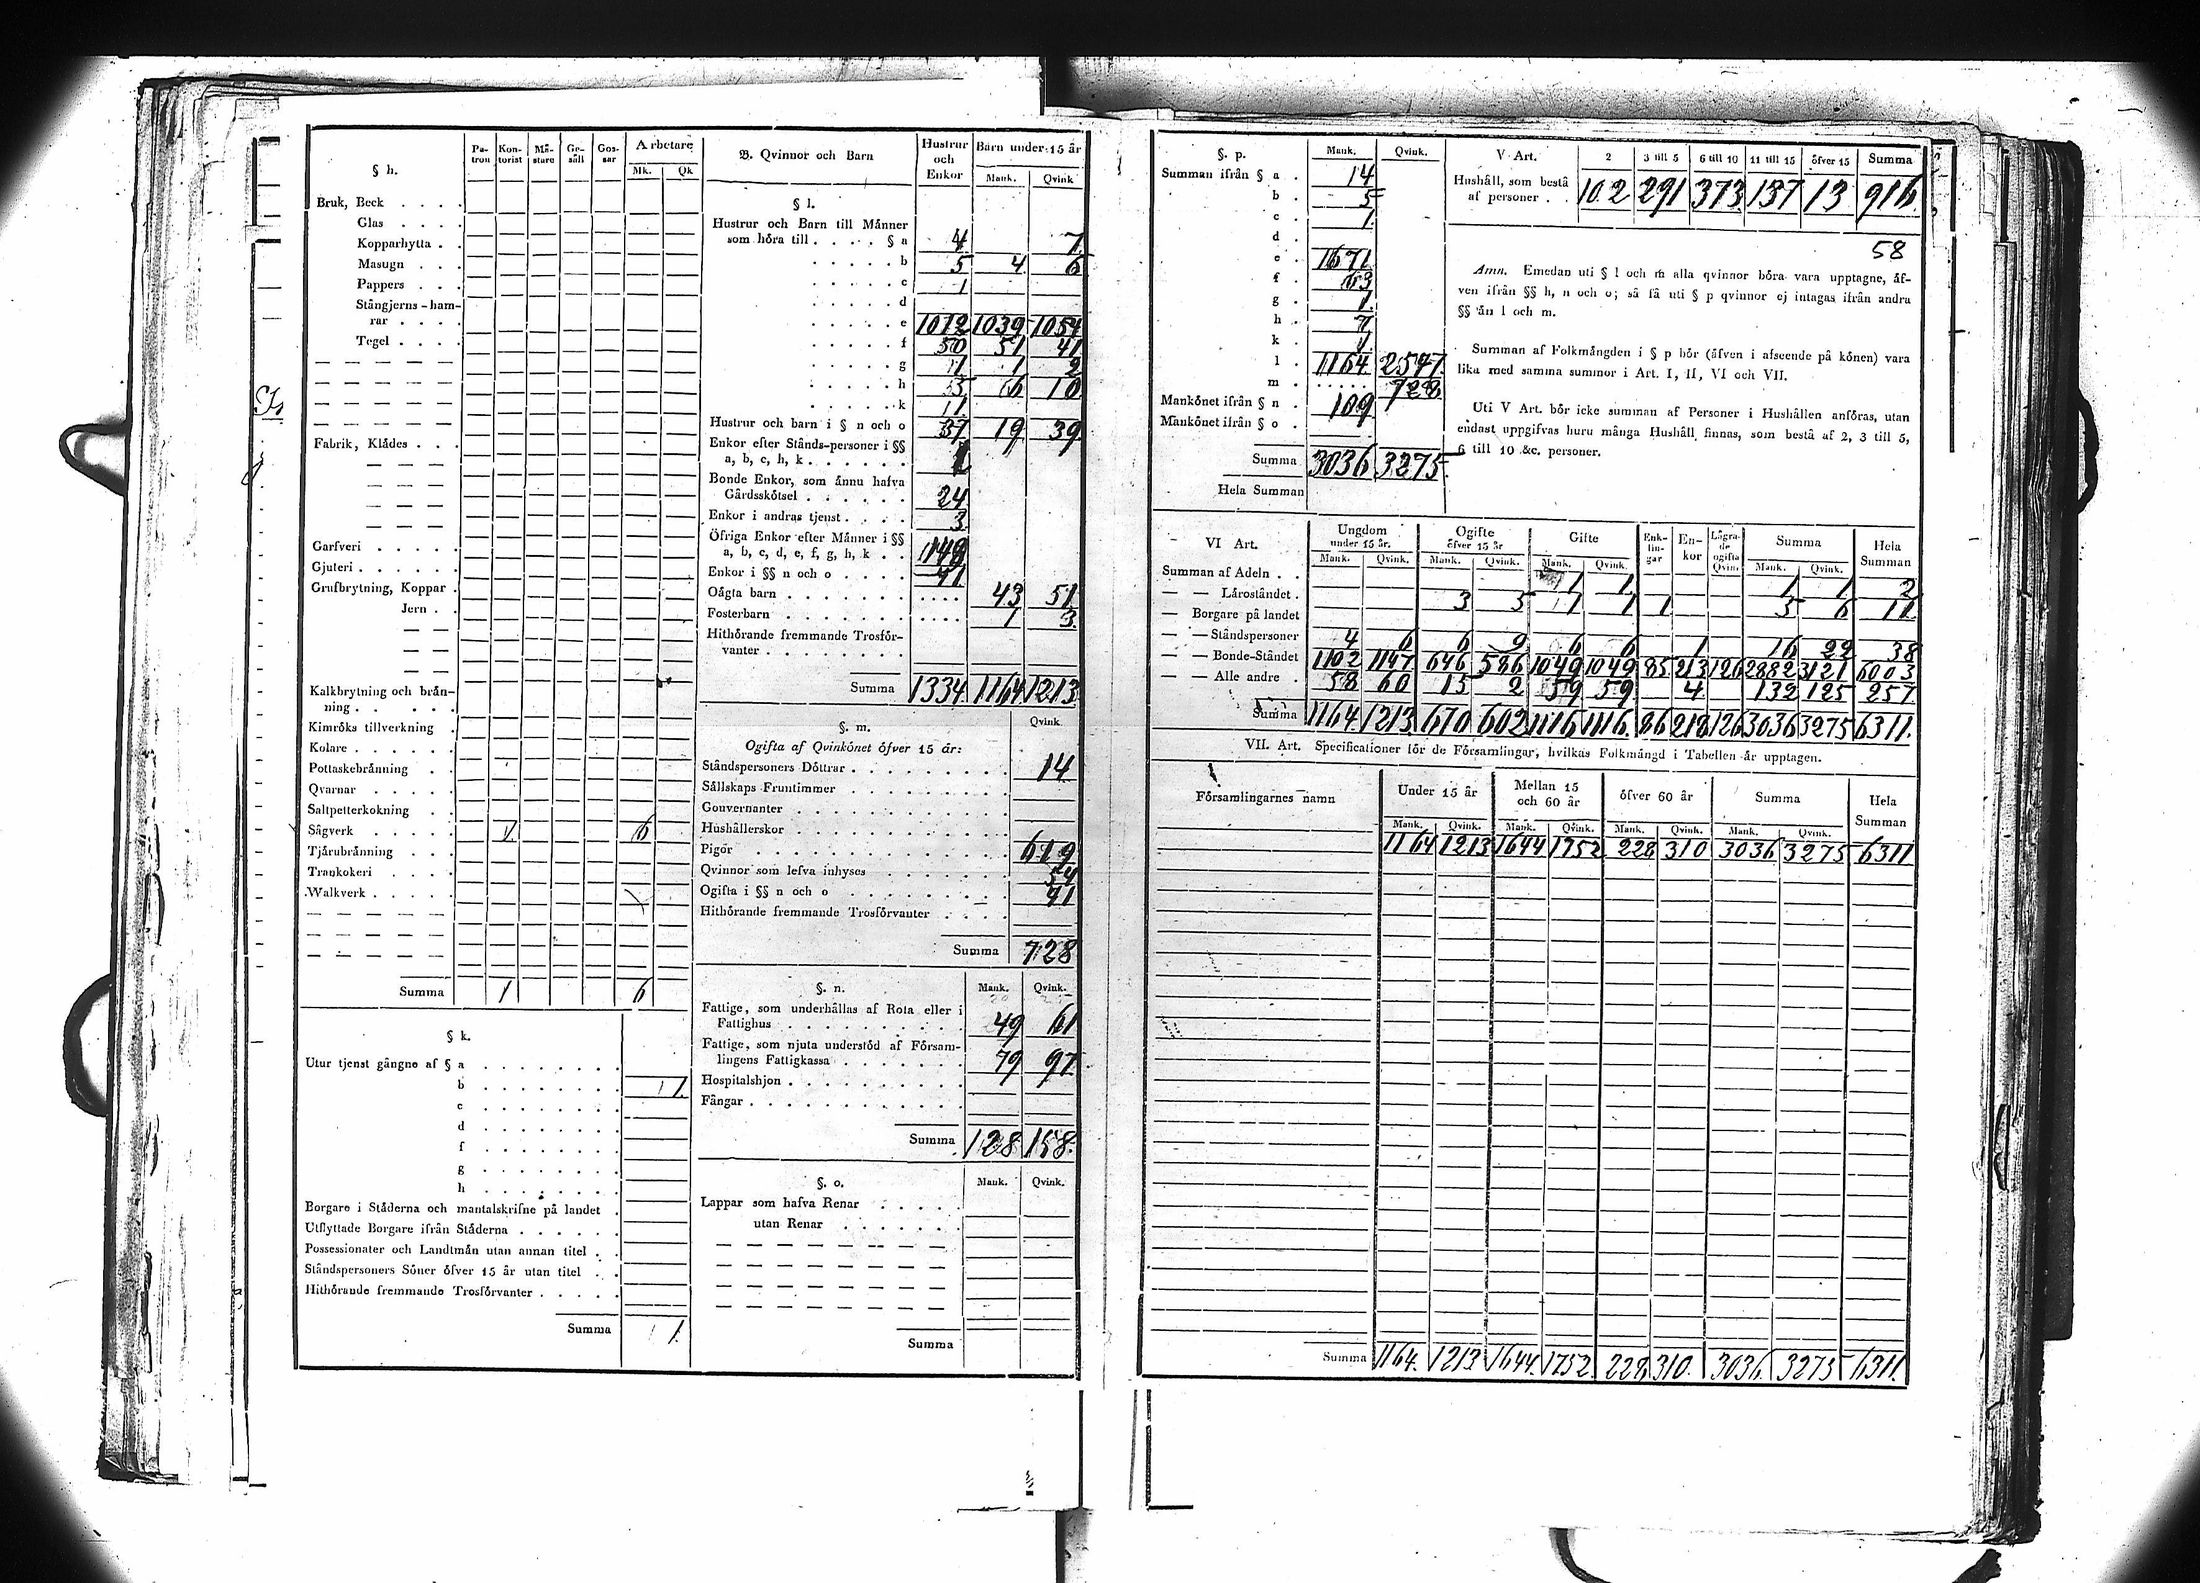 § h.
Pa-tron Kon-torist Mä-stare Ge-säll Gos-sar Arbetare
Mk. Qk
Bruk, Beck . . . .
Glas . . . .
Kopparhytta . .
Masugn . . .
Pappers . . .
Stångjerns-ham-
rar . . . .
Tegel . . . .
Fabrik, Klädes . . .
Garfveri . . . . .
Gjuteri . . . . . .
Grufbrytning, Koppar .
Jern . .
Kalkbrytning och brän-
ning . . . . . .
Kimröks tillverkning .
Kolare . . . . . .
Pottaskebränning . .
Qvarnar . . . . .
Saltpetterkokning . .
Sågverk . . . . . 1 6
Tjärubränning . . .
Trankokeri . . . .
Walkverk . . . . .
Summa 1 6
§ k.
Utur tjenst gångne af § a . . . . . . .
b . . . . . . . 1
c . . . . . . .
d . . . . . . .
f . . . . . . .
g . . . . . . .
h . . . . . . .
Borgare i Städerna och mantalskrifne på landet .
Utflyttade Borgare ifrån Städerna . . . . .
Possessionater och Landtmän utan annan titel . .
Ståndspersoners Söner öfver 15 år utan titel . .
Hithörande fremmande Trosförvanter . . . . .
Summa 1
B. Qvinnor och Barn
Hustrur och Enkor Barn under 15 år
Mank. Qvink
§ l.
Hustrur och Barn till Männer
som höra till . . . . § a 4 7
. . . . . b 5 4 6
. . . . . c 1
. . . . . d
. . . . . e 1012 1039 1054
. . . . . f 50 51 41
. . . . . g 1 1 2
. . . . . h 5 6 10
. . . . . k 1
Hustrur och barn i § n och o 37 19 39
Enkor efter Stånds-personer i §§
a, b, c, h, k . . . . . . 1
Bonde Enkor, som ännu hafva
Gårdsskötsel . . . . . . 24
Enkor i andras tjenst . . . . 3
Öfriga Enkor efter Männer i §§
a, b, c, d, e, f, g, h, k . . 149
Enkor i §§ n och o . . . . 41
Oägta barn . . . . . . . . . . . . 43 51
Fosterbarn . . . . . . . . . . . . 1 3
Hithörande fremmande Trosför-
vanter . . . . . . . .
Summa 1334 1164 1213
§. m.
Qvink.
Ogifta af Qvinkönet öfver 15 år:
Ståndspersoners Döttrar . . . . . . . . . 14
Sällskaps Fruntimmer . . . . . . . . . .
Gouvernanter . . . . . . . . . . . . .
Hushållerskor . . . . . . . . . . . . .
Pigor . . . . . . . . . . . . . . . 619
Qvinnor som lefva inhyses . . . . . . . . 54
Ogifta i §§ n och o . . . . . . . . . . 41
Hithörande fremmande Trosförvanter . . . .
Summa 728
§. n. Mank. Qvink.
Fattige, som underhållas af Rota eller i
Fattighus . . . . . . . . . . 49 61
Fattige, som njuta understöd af Försam-
lingens Fattigkassa . . . . . . . 79 97
Hospitalshjon . . . . . . . . . . .
Fångar . . . . . . . . . . . . . .
Summa 128 158
§. o. Mank. Qvink.
Lappar som hafva Renar . . . . .
utan Renar . . . . . .
Summa
§. p. Mank. Qvink.
Summan ifrån § a . 14
b . 5
c . 1
d .
e . 1671
f . 63
g . 1
h . 7
k . 1
l . 1164 2547
m . . . . . . 728
Mankönet ifrån § n . 109
Mankönet ifrån § o .
Summa 3036 3275
Hela Summan
V Art. 2 3 till 5 6 till 10 11 till 15 öfver 15 Summa
Hushåll, som bestå
af personer . . 102 291 373 137 13 916
58
Anm. Emedan uti § l och m alla qvinnor böra vara upptagne, äf-
ven ifrån §§ h, n och o; så få uti § p qvinnor ej intagas ifrån andra
§§ än l och m.
Summan af Folkmängden i § p bör (äfven i afseende på könen) vara
lika med samma summor i Art. I, II, VI och VII.
Uti V Art. bör icke summan af Personer i Hushållen anföras, utan
endast uppgifvas huru många Hushåll finnas, som bestå af 2, 3 till 5,
6 till 10 &c. personer.
VI Art. Ungdom under 15 år. Ogifte öfver 15 år Gifte Enk-lin-gar En-kor Lägra-de ogifta Qvin. Summa Hela Summan
Mank. Qvink. Mank. Qvink. Mank. Qvink. Mank. Qvink.
Summan af Adeln . . 1 1 1 1 2
— — Läroståndet . 3 5 1 1 1 5 6 11
— Borgare på landet
— — Ståndspersoner 4 6 6 9 6 6 1 16 22 38
— — Bonde-Ståndet 1102 1147 646 586 1049 1049 85 213 126 2882 3121 6003
— — Alle andre . 58 60 15 2 59 59 4 132 125 257
Summa 1164 1213 670 602 1116 1116 86 218 126 3036 3275 6311
VII. Art. Specificationer för de Församlingar, hvilkas Folkmängd i Tabellen är upptagen.
Församlingarnes namn Under 15 år Mellan 15 och 60 år öfver 60 år Summa Hela Summan
Mank. Qvink. Mank. Qvink. Mank. Qvink. Mank. Qvink.
1164 1213 1644 1752 228 310 3036 3275 6311
Summa 1164. 1213 1644. 1752. 228 310. 3036. 3275 6311.